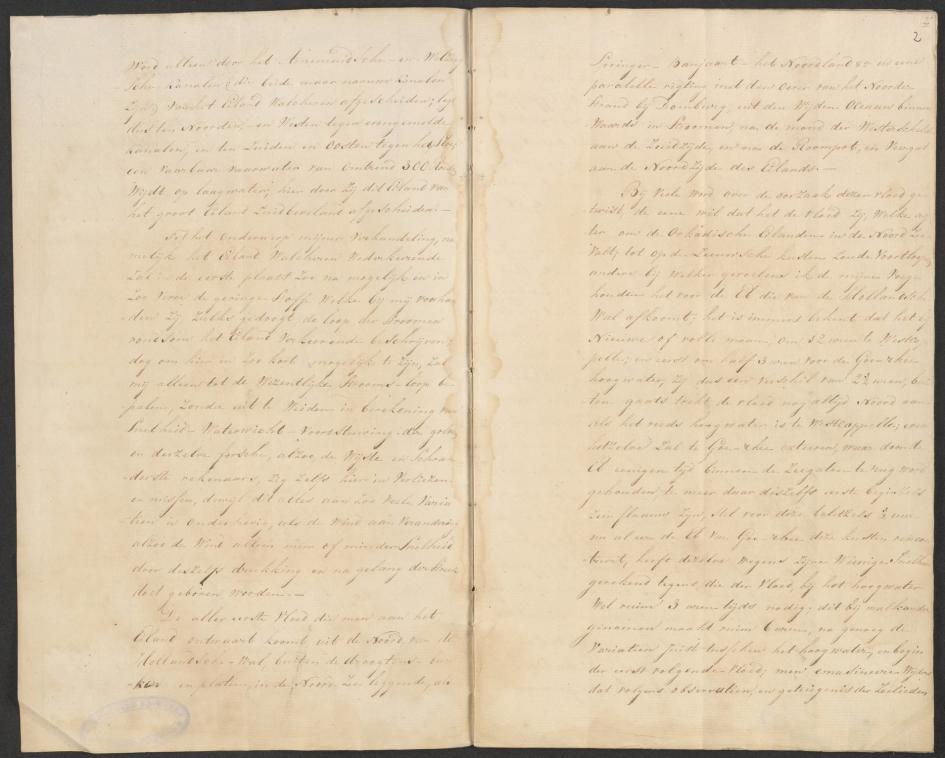 Word alleen door het Arnemuidsche- en Welzing
Sche- Kanalen (die beide maar naauwe Kanalen
Zijn) van het Eiland Walcheren afgescheiden; leg
dus ten Noorden,- en Westen tegen evengemelde
Kanalen, en ten Zuiden en Oosten tegen het
een Vaarbaar naauwater van Omtrend 300
Wydt, op laagwater; hier door Zij dit Eiland van
het groot Eiland Zuidbeveland afgescheiden.-
Tot het Onderwerp mijner Verhandeling, na
melijk het Eilant Walcheren Wederkeerende
Zal in de eerste plaats Zoo na mogelijk en in
Zoo verre de geringe Stoffe Welke bij mij voorhan
den Zij Zulks gedoogt de loop der Stroomen
rondsom het Eiland Verkeerende beschrijven;
dog om hier in Zoo kort mogelijk te Zijn, Zal
mij alleen tot de Wezentlijke Strooms-loop be
palen, Zonder uit te Weiden in berekening van
Snelheid- Waterwicht- Voortstuwing der golven
en derzelve forsche, alzoo de Wijste en Schran
derste rekenaars, Zig Zelfs hier in Verliezen
en missen, dewijl dit alles aan Zoo veele Varia
tien is Onderhevig, als de Wind aan Verandering
alzoo de Wint alleen meer of minder Snelheid
door deszelfs drukking en na gelang der
doet geboren worden.-
De aller eerste Vloed die men aan het
Eiland ontwaart koomt uit de Noord van de
Hollandsche-Wal, buiten de droogtens- ban
ken en platen, in de Noord Zee leggende, als
2
Springer- Banjaart- het Noordland &c in eene
paralelle rigting met den Oever van het Noorder
Strand bij Domburg, uit den Wijden Oceaan binne
Waards in Stroomen, na de mond der Westerschelde
aan de Zuidzijde, en na de Roompot, en Veergat
aan de Noord Zijde des Eilands.-
Bij Veele Word over de oorzaak dezer vloed ge
twist, de eene wil dat het de Vloed Zij, Welke ag
ter om de Orkadische Eilanden in de Noord Zee
Valt, tot op de Zeeuwsche kusten Zoude Voortloopen
andere bij Welker gevoelens ik de mijnen Voeg
houden het voor de Eb die van de Hollandsche
Wal afkoomt; het is immers bekent dat het bij
Nieuwe of volle maan, Om 12 uuren te Westka
pelle, en eerst om half 3 uren voor de Goeree
hoogwater, Zij dus een verschil van 2½ uuren, bui
ten gaats trekt de vloed nog altijd Noord aan
als het reeds hoogwater is te Westkappelle, een
hetzelve Zal te Goeree exteeren, waar door de
Eb eenigen tijd binnen de Zeegaten te rug word
gehouden, te meer daar deszelfs eerste beginsels
Zeer flaauw Zijn, stel voor deze beletzels ½ uur
nu aleer de Eb van Goeree deze kusten
heeft dezelve wegens Zijne Weinige Snelheid
gerekend tegens die der Vloed, bij het hoogwater
Wel ruim 3 uuren tijds nodig; dit bij malkander
genomen maakt ruim 6 uuren, na genoeg de
Variation juist tusschen het hoogwater, en begin
der eerst volgende Vloed; men
dat volgens observatien, en getuigenis der Zeelieden